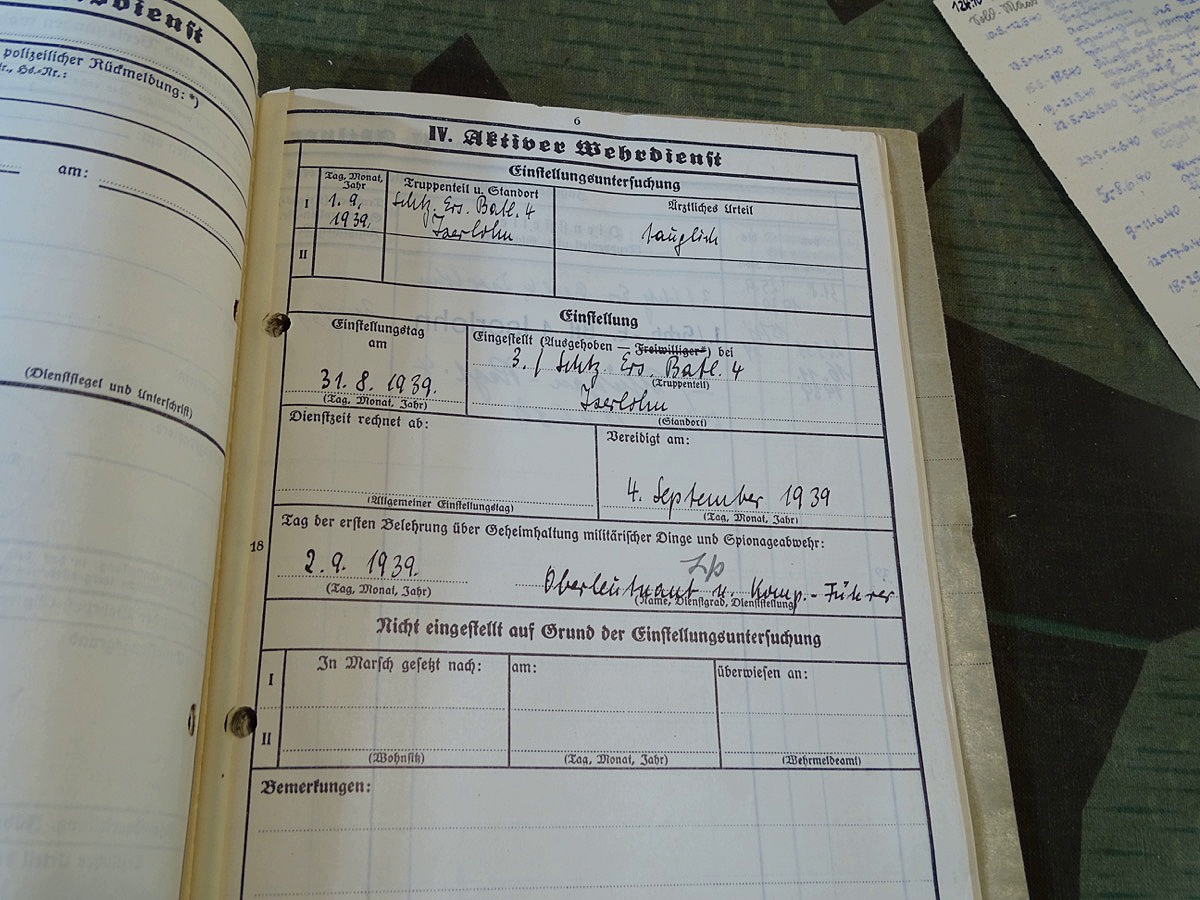 sdienst
polizeilicher Rückmeldung:*)
tr., Hs.-Nr.:
am:
(Dienstsiegel und Unterschrift)
6
IV. Aktiver Wehrdienst
Einstellungsuntersuchung
Tag, Monat, Jahr
Truppenteil u. Standort
Ärztliches Urteil
I
1. 9. 1939.
Schtz. Ers. Batl. 4
Iserlohn
tauglich
II
Einstellung
Einstellungstag
am
31. 8. 1939.
(Tag, Monat, Jahr)
Eingestellt (Ausgehoben — Freiwilliger*) bei
3. / Schtz. Ers. Batl. 4
(Truppenteil)
Iserlohn
(Standort)
Dienstzeit rechnet ab:
(Allgemeiner Einstellungstag)
Vereidigt am:
4. September 1939
(Tag, Monat, Jahr)
18
Tag der ersten Belehrung über Geheimhaltung militärischer Dinge und Spionageabwehr:
2. 9. 1939.
(Tag, Monat, Jahr)
Oberleutnant u. Komp.-Führer
(Name, Dienstgrad, Dienststellung)
Nicht eingestellt auf Grund der Einstellungsuntersuchung
I
In Marsch gesetzt nach:
am:
überwiesen an:
II
(Wohnsitz)
(Tag, Monat, Jahr)
(Wehrmeldeamt)
Bemerkungen: